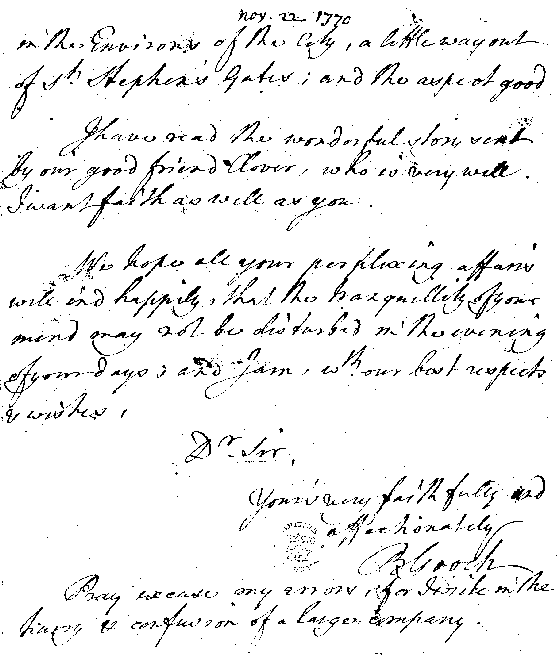 nov. 22 1770
in the Environs of the City, a little way out
of St. Stephen's Gates; and the aspect good
I have read the wonderful story sent
by our good friend Clover, who is very well.
I want faith as well as you.
We hope all your perplexing affairs
will end happily, that the tranquillity of your
mind may not be disturbed in the evening
of your days; and I am, wth. our best respects
& wishes,
Dr. Sir,
Yours very faithfully and
affectionately
B Gooch
Pray excuse my errors; for I write in the
hurry & confusion of a large company.